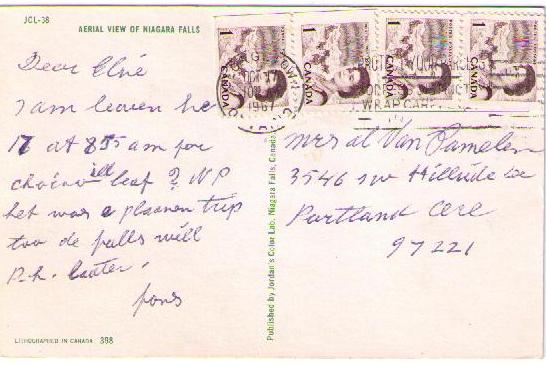 JCL-38
AERIAL VIEW OF NIAGARA FALLS
1 CANADA
1 CANADA
1 CANADA
1 CANADA
OCT 17
1967
WRAP CAREFULLY
Dear Elsie
I am leaven he
17 at 855 am for
ill leaf ? UP
het was a plaanen trip
too de falls will
P.h. later.
mrs al Van Damelen
3546 sw Hillside Dr
Partland Ore
97221
Published by Jordan's Color Lab, Niagara Falls, Canada.
LITHOGRAPHED IN CANADA 388